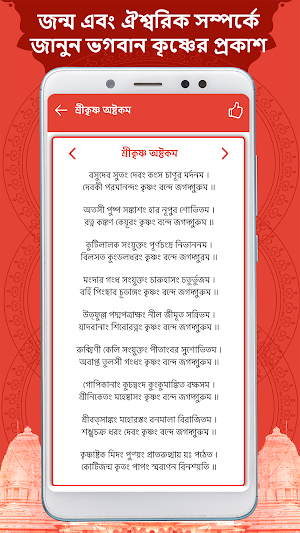 জন্ম এবং ঐশ্বরিক সম্পর্কে
জানুন ভগবান কৃষ্ণের প্রকাশ
শ্রীকৃষ্ণ অষ্টকম
শ্রীকৃষ্ণ অষ্টকম
বসুদেব সুতং দেবং কংস চাণূর মর্দনম ।
দেবকী পরমানন্দং কৃষ্ণং বন্দে জগদ্গুরুম ॥
অতসী পুষ্প সঙ্কাশং হার নূপুর শোভিতম ।
রত্ন কঙ্কণ কেয়ূরং কৃষ্ণং বন্দে জগদ্গুরুম ॥
কুটিলালক সংযুক্তং পূর্ণচংদ্র নিভাননম ।
বিলসত কুংডলধরং কৃষ্ণং বন্দে জগদ্গুরুম ॥
মংদার গংধ সংযুক্তং চারুহাসং চতুর্ভুজম ।
বর্হি পিংছাব চূডাঙ্গং কৃষ্ণং বন্দে জগদ্গুরুম ॥
উত্ফুল্ল পদ্মপত্রাক্ষং নীল জীমূত সন্নিভম ।
যাদবানাং শিরোরত্নং কৃষ্ণং বন্দে জগদ্গুরুম ॥
রুক্মিণী কেলি সংযুক্তং পীতাংবর সুশোভিতম ।
অবাপ্ত তুলসী গংধং কৃষ্ণং বন্দে জগদ্গুরুম ॥
গোপিকানাং কুচদ্বংদ কুংকুমাঙ্কিত বক্ষসম ।
শ্রীনিকেতং মহেষ্বাসং কৃষ্ণং বন্দে জগদ্গুরুম ॥
শ্রীবত্সাঙ্কং মহোরস্কং বনমালা বিরাজিতম ।
শঙ্খচক্র ধরং দেবং কৃষ্ণং বন্দে জগদ্গুরুম ॥
কৃষ্ণাষ্টক মিদং পুণ্যং প্রাতরুত্থায় য়ঃ পঠেত ।
কোটিজন্ম কৃতং পাপং স্মরণেন বিনশ্যতি ॥